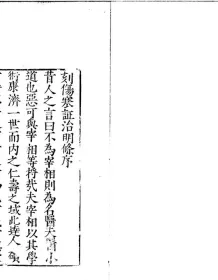 刻傷寒証治明條序
昔人之言曰不為宰相則為名醫夫醫小
道也惡可與宰相等哉夫宰相以其學
術康濟一世而内之仁壽之域此達人